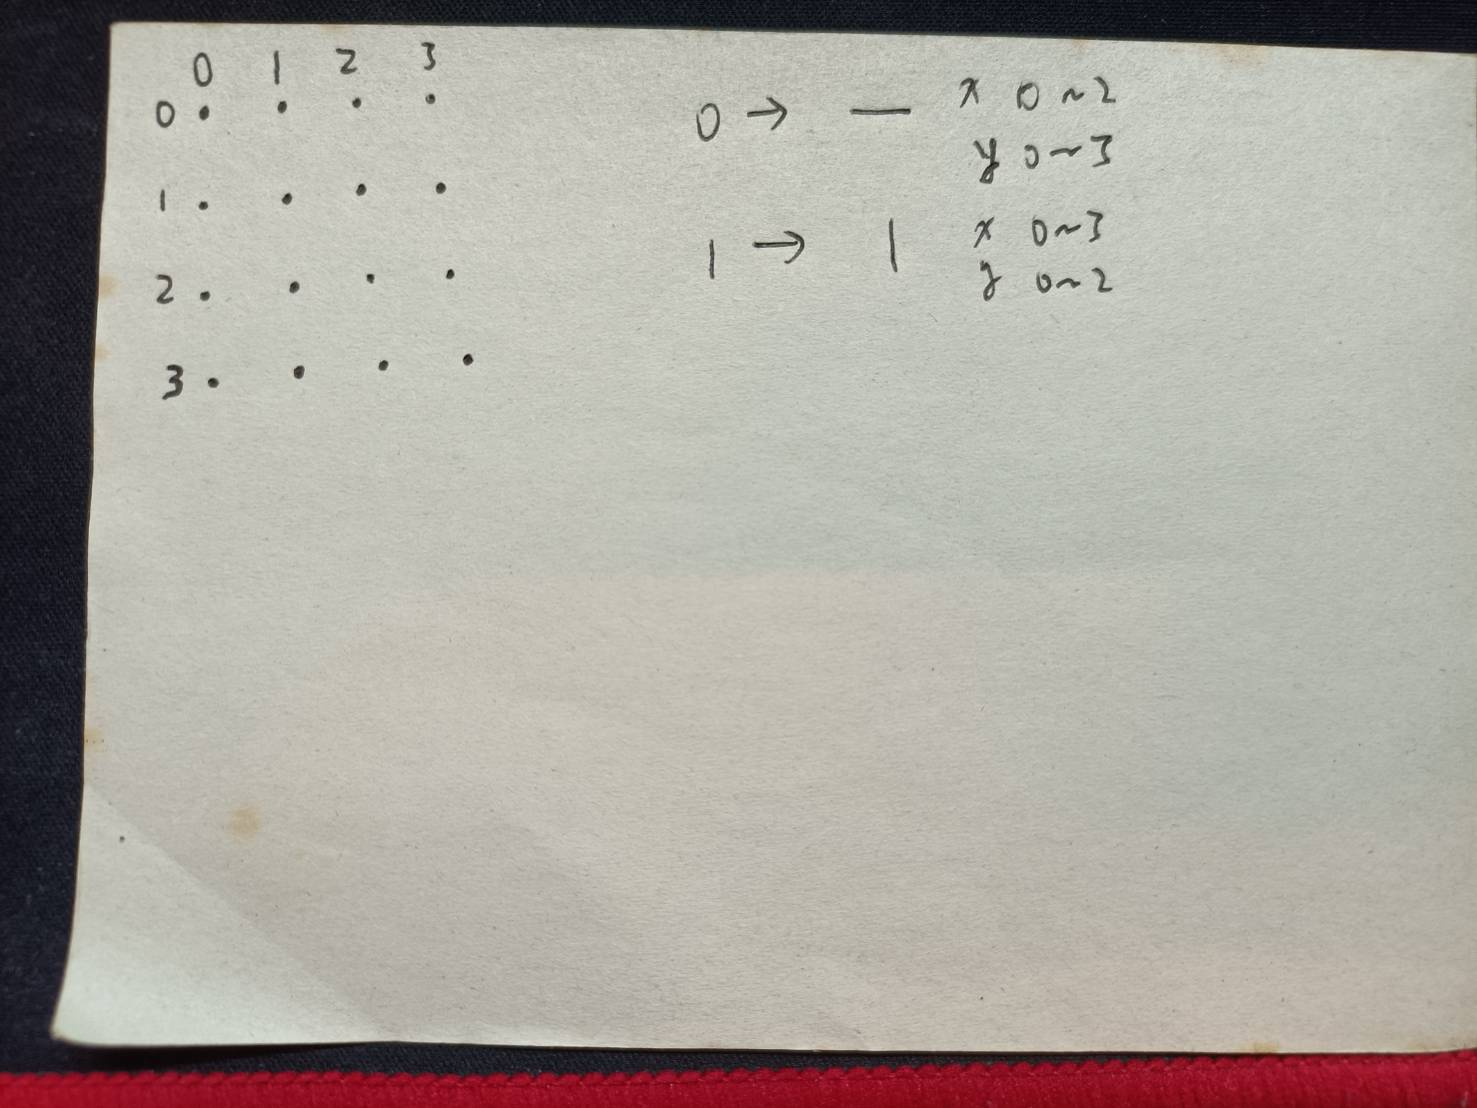 0 1 2 3
0 . . . .
1 . . . .
2 . . . .
3 . . . .
0 → — x 0~2
y 0~3
1 → | x 0~3
y 0~2